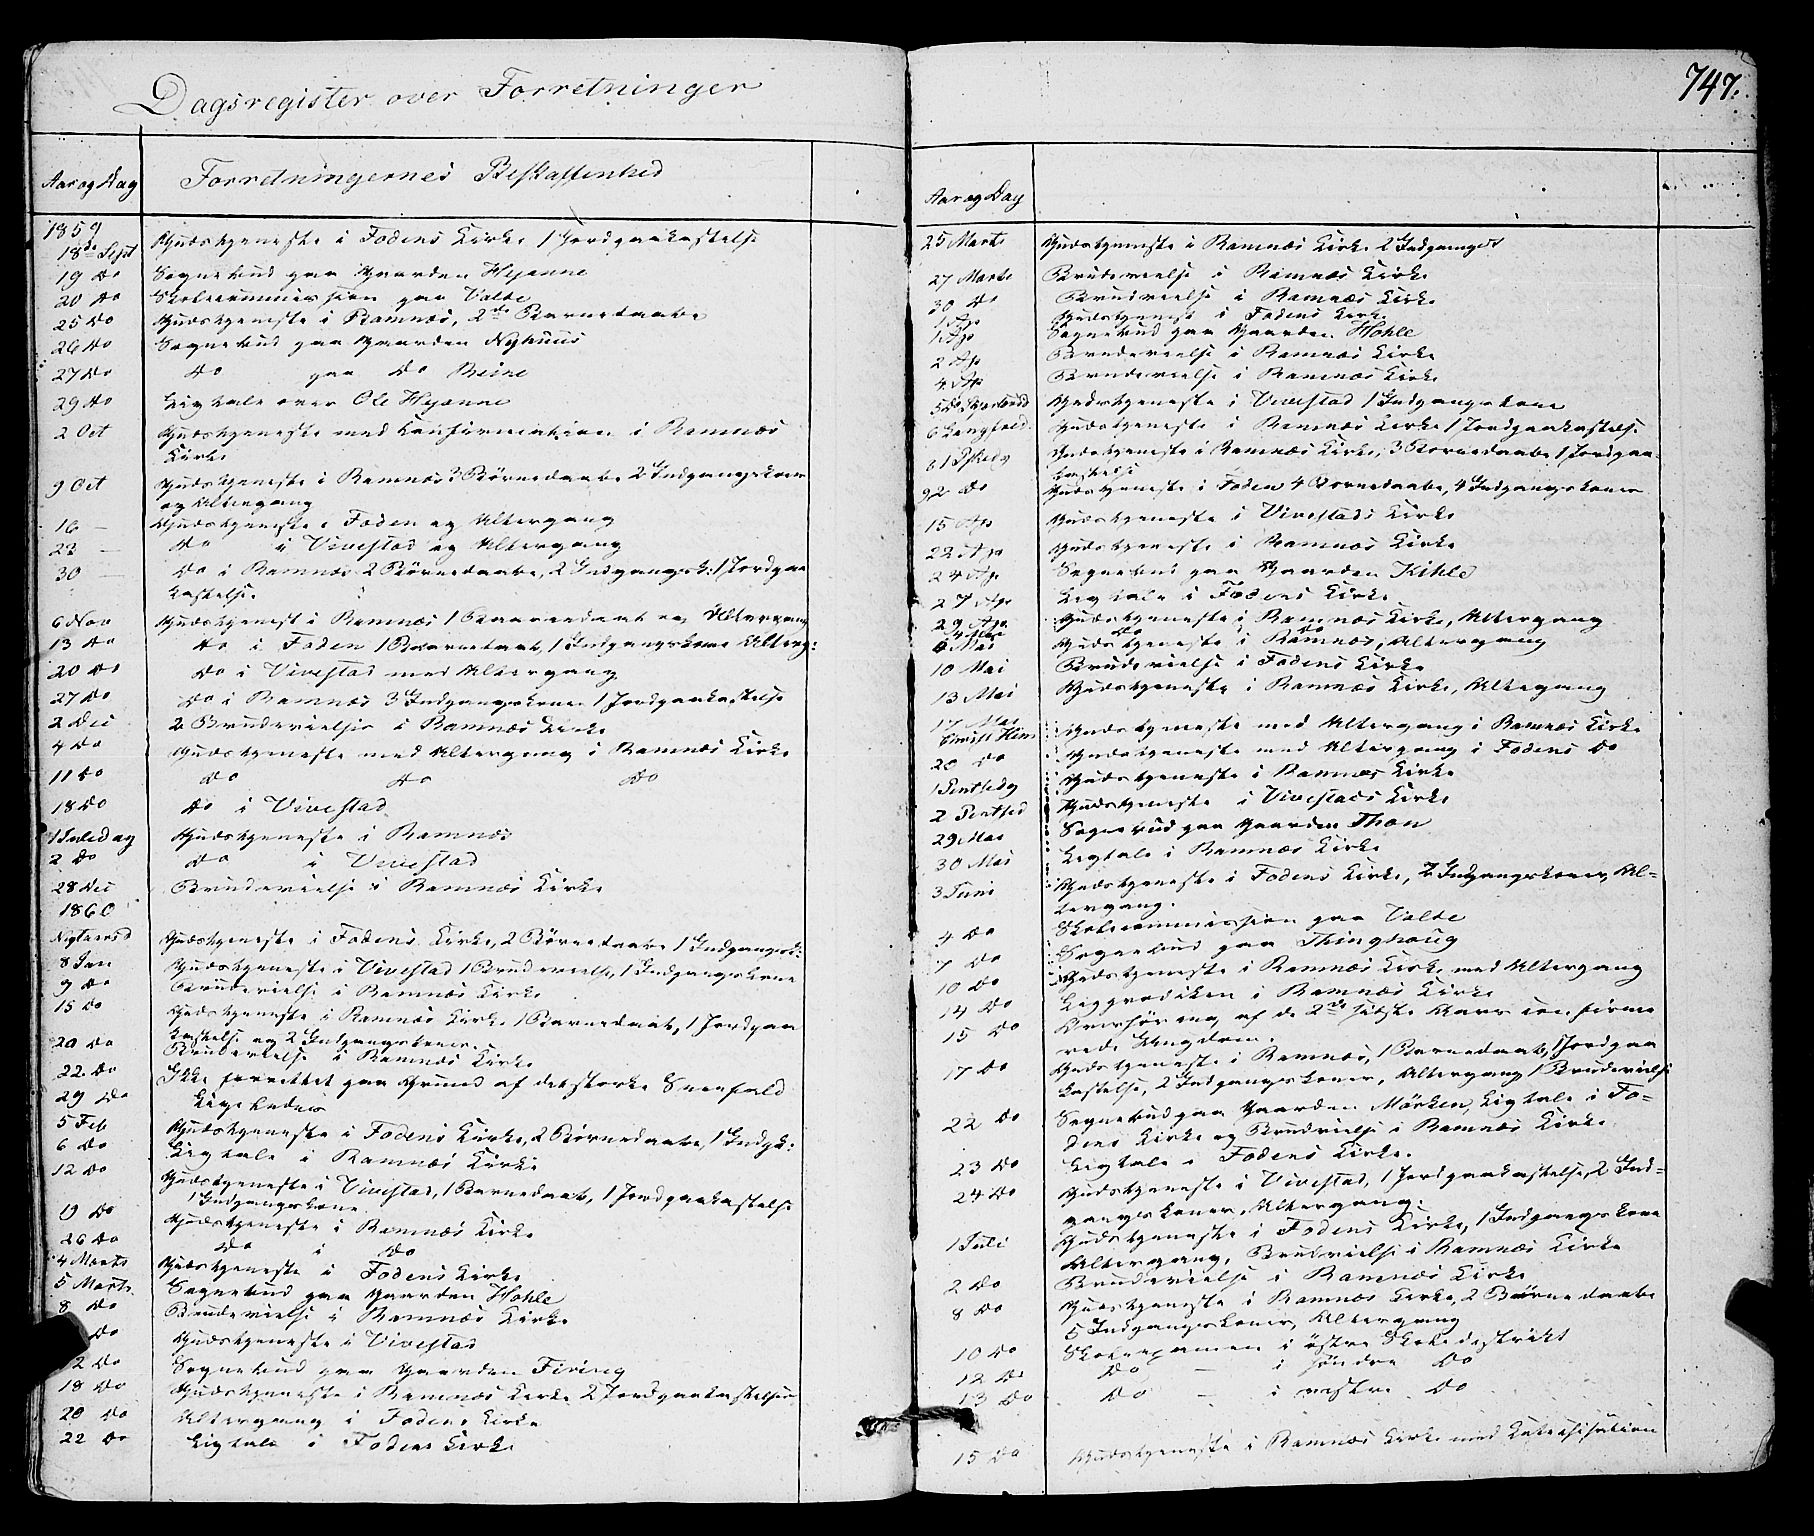 Dagsregister over Forretninger
747.
Aar og Dag Forretningernes Beskaffenhed
1859
18de Sept Gudstjeneste i Fodens Kirke 1 Jordpaakastelse
19 Do Sognebud paa Gaarden Hejanne
20 Do Skolecommission paa Valde
25 Do Gudstjeneste i Ramnæs, 2de Barnedaabe
26 Do Sognebud paa Gaarden Nyhuus
27 Do Do paa Do Beine
29 Do Ligtale over Ole Hejanne
2 Oct Gudstjeneste med Confirmation i Ramnæs
Kirke
9 Oct Gudstjeneste i Ramnæs 3 Børnedaabe 2 Indgangskoner
og Altergang
16 — Gudstjeneste i Foden og Altergang
23 — Do i Vivestad og Altergang
30 — Do i Ramnæs 2 Børnedaabe, 2 Indgangsk: 1 Jordpaa
kastelse
6 Nov Gudstjenest i Ramnæs 1 Baarnedaab og Altergang
13 Do Do i Foden 1 Barnedaab, 1 Indgangskone Alterg:
20 Do Do i Vivestad med Altergang
27 Do Do i Ramnæs 3 Indgangskoner 1 Jordpaakastelse
2 Dec 2 Brudevielser i Ramnæs Kirke
4 Do Gudstjeneste med Altergang i Ramnæs Kirke
11 Do Do Do Do
18 Do Do i Vivestad
1 Juledag Gudstjeneste i Ramnæs
2 Do Do i Vivestad
28 Dec Brudevielse i Ramnæs Kirke
1860
Nytaarsd Gudstjeneste i Fodens Kirke, 2 Børnedaabe 1 Indgangsk:
8 Jan Gudstjeneste i Vivestad 1 Brudevielse, 1 Indgangskone
9 Do Brudevielse i Ramnæs Kirke
15 Do Gudstjeneste i Ramnæs Kirke, 1 Barnedaab, 1 Jordpaa
kastelse og 2 Indgangskoner
20 Do Brudevielse i Ramnæs Kirke
22 Do Ikke forrettet paa Grund af det stærke Sneefald
29 Do Ligeledes
5 Feb Gudstjeneste i Fodens Kirke, 2 Børnedaabe, 1 Indgk:
6 Do Ligtale i Ramnæs Kirke
12 Do Gudstjeneste i Vivestad, 1 Barnedaab, 1 Jordpaakastelse
1 Indgangskone
19 Do Gudstjeneste i Ramnæs Kirke
26 Do Do i Do
4 Marts Gudstjeneste i Fodens Kirke
5 Marts Sognebud paa Gaarden Hohle
8 Do Brudevielse i Ramnæs Kirke
Do Gudstjeneste i Vivestad
12 Do Sognebud paa Gaarden Firing
18 Do Gudstjeneste i Ramnæs Kirke 2 Jordpaakastelser
20 Do Altergang i Fodens Kirke
22 Do Ligtale i Fodens Kirke
Aar og Dag
25 Marts Gudstjeneste i Ramnæs Kirke 2 Indgangsk
27 Marts Brudevielse i Ramnæs Kirke
30 Do Brudevielse i Ramnæs Kirke
1 Ap Gudstjenest i Fodens Kirke
1 Ap Sognebud paa Gaarden Hohle
2 Ap Brudevielse i Ramnæs Kirke
4 Ap Brudevielse i Ramnæs Kirke
5 Do Gudstjeneste i Vivestad 1 Indgangskone
6 Langfred. Gudstjeneste i Ramnæs Kirke 1 Jordpaakastelse
8 1 Pskdg Gudstjeneste i Ramnæs Kirke, 3 Børnedaabe 1 Jordpaa-
kastelse
9 2 Do Gudstjeneste i Foden 4 Børnedaabe, 4 Indgangskoner
15 Ap Gudstjeneste i Vivestads Kirke
22 Ap Gudstjeneste i Ramnæs Kirke
24 Ap Sognebud paa Gaarden Kihle
27 Ap Ligtale i Fodens Kirke
29 Ap Gudstjeneste i Ramnæs Kirke, Altergang
4 Mai Do Do
6 Mai Gudstjeneste i Ramnæs, Altergang
10 Mai Brudevielse i Fodens Kirke
13 Mai Gudstjeneste i Ramnæs Kirke, Altegang
17 Mai
Christi Him Gudstjeneste med Altergang i Ramnæs Kirke
20 Do Gudstjeneste med Altergang i Fodens Do
1 Pintsedg Gudstjeneste i Ramnæs Kirke
2 Pintsed Gudstjeneste i Vivestads Kirke
29 Mai Sognebud paa Gaarden Thon
30 Mai Ligtale i Ramnæs Kirke
3 Juni Gudstjeneste i Fodens Kirke, 2 Indgangskoner, Al-
tergang.
4 Do Skolecommission paa Valde
7 Do Sognebud paa Thinghoug
10 Do Gudstjeneste i Ramnæs Kirke med Altergang
14 Do Ligprediken i Ramnæs Kirke
15 Do Overhøring af de 2de sidste Aars confirme
rede Ungdom.
17 Do Gudstjeneste i Ramnæs, 1 Barnedaab, 1 Jordpaa
kastelse, 2 Indgangskoner, Altergang 1 Brudevielse
22 Do Sognebud paa Gaarden Mörken, Ligtale i Fo-
dens Kirke og Brudvielse i Ramnæs Kirke
23 Do Ligtale i Fodens Kirke.
24 Do Gudstjeneste i Vivestad, 1 Jordpaakastelse, 2 Ind-
gangskoner, Altergang.
1 Juli Gudstjeneste i Fodens Kirke, 1 Indgangskone
Altergang, Brudvielse i Ramnæs Kirke
2 Do Brudevielse i Ramnæs Kirke
8 Do Gudstjeneste i Ramnæs Kirke, 2 Børnedaabe
5 Indgangskoner, Altergang
10 Do Skoleexamen i østre Skoledistrikt
12 Do Do — i søndre Do
13 Do Do — i vestre Do
15 Do Gudstjeneste i Ramnæs Kirke med Katechisation